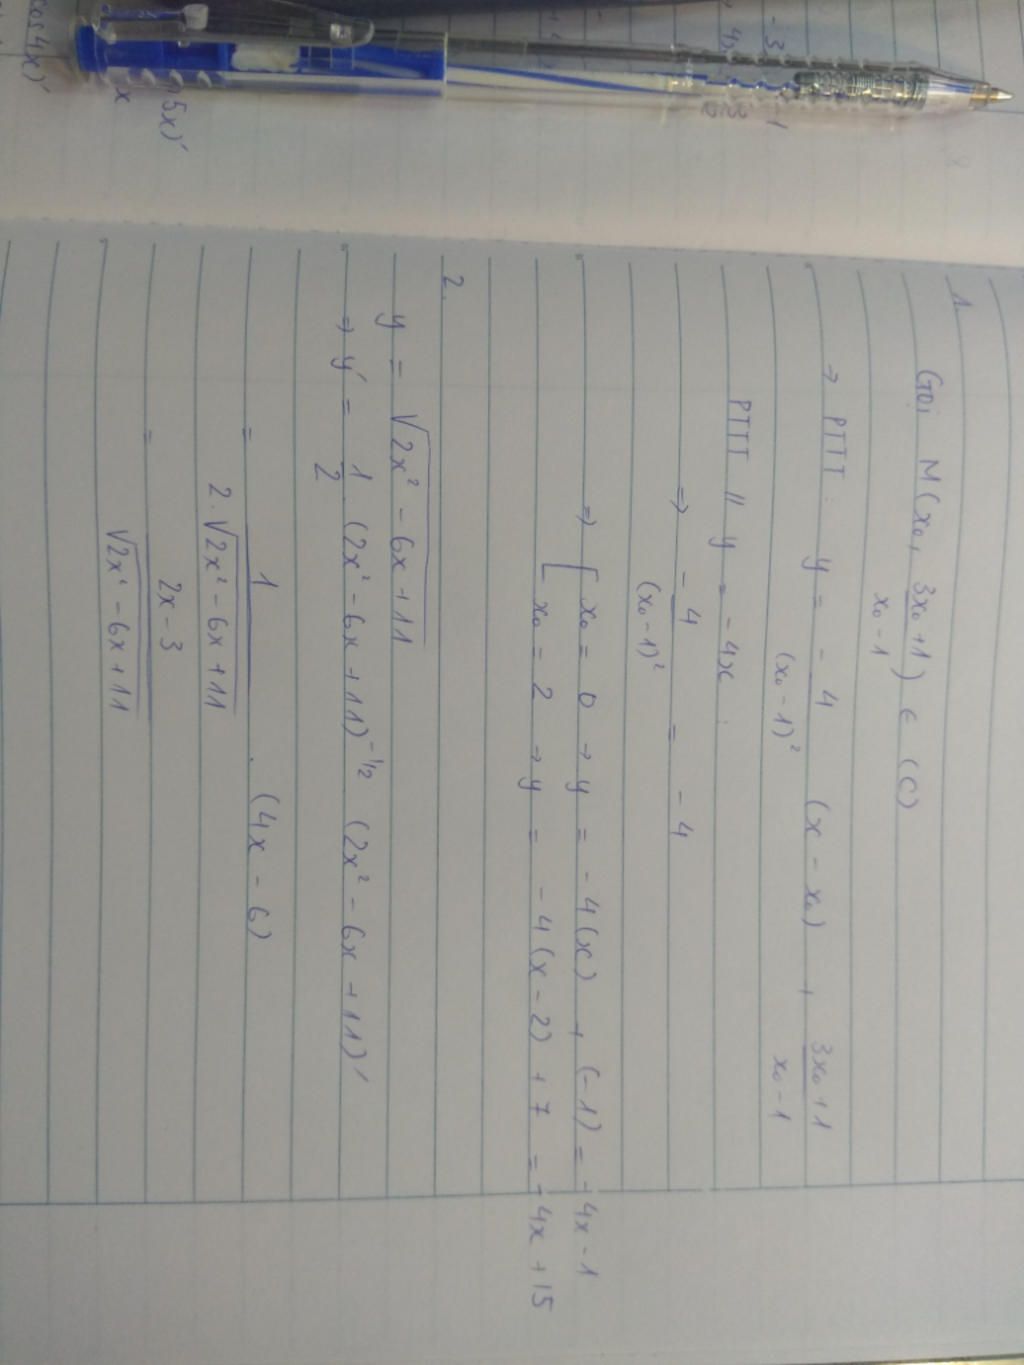 1.
Gọi M(x₀, (3x₀+1)/(x₀-1)) ∈ (C)
→ PTTT: y = - 4/(x₀-1)² (x - x₀) + (3x₀+1)/(x₀-1)
PTTT // y = -4x:
⇒ - 4/(x₀-1)² = -4
⇒ [ x₀ = 0 → y = -4(x) + (-1) = -4x-1
[ x₀ = 2 → y = -4(x-2) + 7 = -4x+15
2.
y = √(2x² - 6x + 11)
⇒ y' = 1/2 (2x² - 6x + 11)^(-1/2) (2x² - 6x + 11)'
= 1/(2.√(2x² - 6x + 11)) . (4x - 6)
= (2x - 3)/√(2x² - 6x + 11)
5x)'
x
cos4x)'